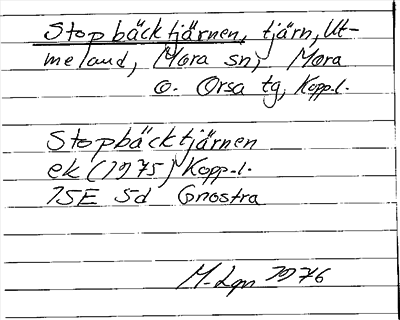 Stopbäcktjärnen, tjärn, Ut-
meland, Mora sn, Mora
o. Orsa tg, Kopp.l.
Stopbäcktjärnen
ek (1975) Kopp.l.
15E 5d Gnostra
M-Lgn 1976